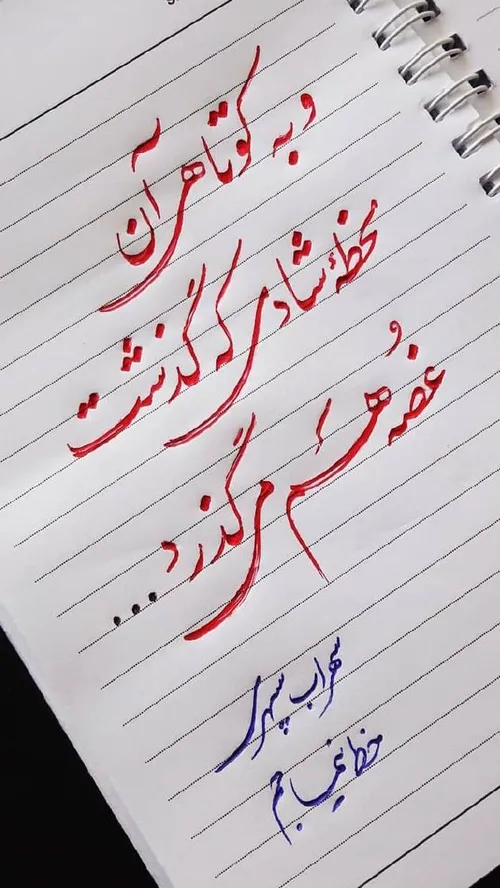 و به کوتاهی آن
لحظهٔ شادی که گذشت
غُصه هم می گذرد...
سهراب سپهری